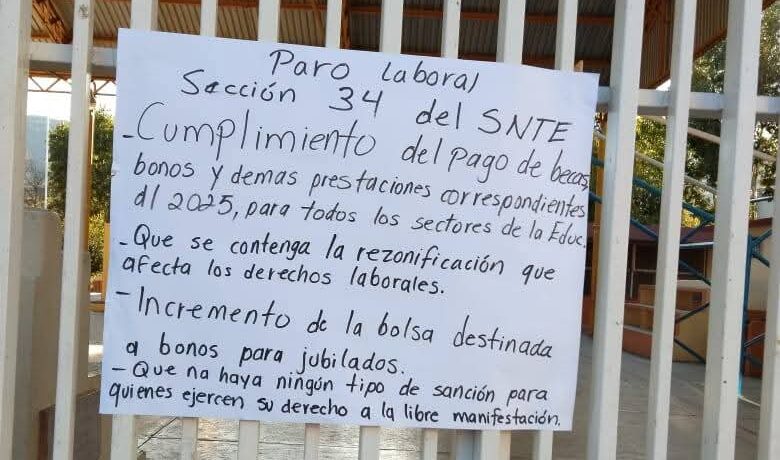 Paro laboral
Sección 34 del SNTE
-Cumplimiento del pago de becas,
bonos y demas prestaciones correspondientes
dl 2025, para todos los sectores de la Educ.
- Que se contenga la rezonificación que
afecta los derechos laborales.
- Incremento de la bolsa destinada
a bonos para jubilados.
- Que na haya ningún tipo de sanción para
quienes ejercen su derecho a la libre manifestación.